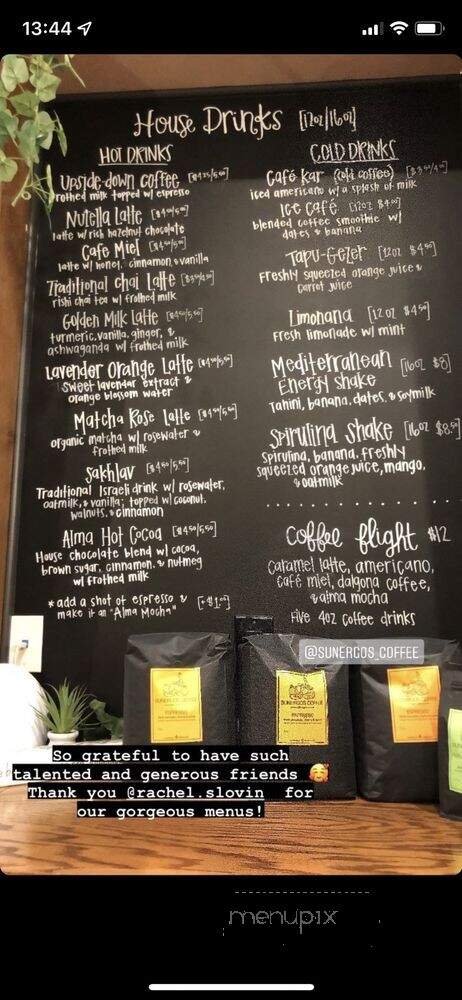 13:44
House Drinks [12oz/16oz]
HOT DRINKS
Upside-down coffee
frothed milk topped w/ espresso
Nutella Latte
latte w/ rich hazelnut chocolate
Cafe Miel
latte w/ honey, cinnamon & vanilla
Traditional chai Latte
rishi chai tea w/ frothed milk
Golden Milk Latte
turmeric, vanilla, ginger, &
ashwaganda w/ frothed milk
Lavender Orange Latte
sweet lavender extract &
orange blossom water
Matcha Rose Latte
organic matcha w/ rosewater &
frothed milk
Sakhlav
Traditional Israeli drink w/ rosewater,
oatmilk, & vanilla; topped w/ coconut,
walnuts, & cinnamon
Alma Hot Cocoa
House chocolate blend w/ cocoa,
brown sugar, cinnamon, & nutmeg
w/ frothed milk
*add a shot of espresso & [+$1.00]
make it an "Alma Mocha"
COLD DRINKS
Café Kar (cold coffee)
iced americano w/ a splash of milk
Ice Café [12oz $4.00]
blended coffee smoothie w/
dates & banana
Tapu-Gezer [12oz $4.50]
Freshly squeezed orange juice &
carrot juice
Limonana [12oz $4.50]
Fresh limonade w/ mint
Mediterranean [16oz $8]
Energy Shake
Tahini, banana, dates, & soymilk
Spirulina Shake [16oz $8.50]
Spirulina, banana, freshly
squeezed orange juice, mango,
& oatmilk
coffee flight $12
caramel latte, americano,
café miel, dalgona coffee,
& alma mocha
Five 4oz coffee drinks
@SUNERGOS_COFFEE
SUNERGOS COFFEE
SUNERGOS COFFEE
SUNERGOS COFFEE
So grateful to have such
talented and generous friends 🥰
Thank you @rachel.slovin for
our gorgeous menus!
menupix